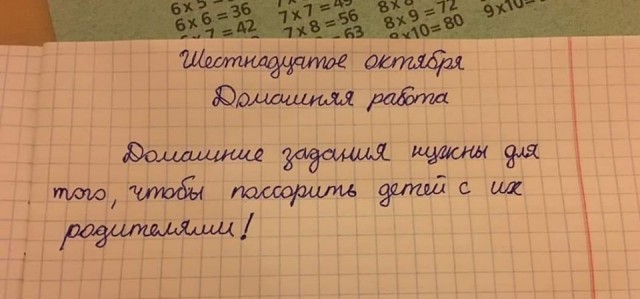 6 x 6 = 36 7 x 7 = 49 8 x 9 = 72 9 x 10 =
7 = 42 7 x 8 = 56 8 x 10 = 80
= 63
Шестнадцатое октября
Домашняя работа
Домашние задания нужны для
того, чтобы поссорить детей с их
родителями!